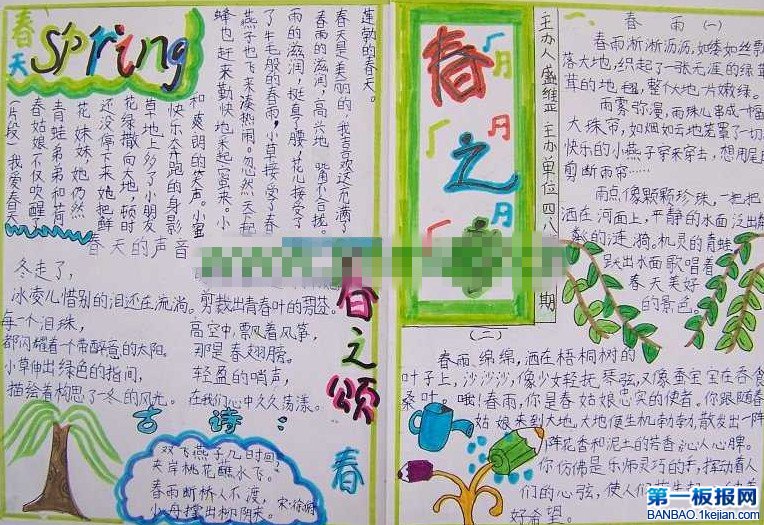 春天
spring
蓬勃的春天。
春天是美丽的,我喜欢这充满了
春雨的滋润,高兴地
雨的滋润,挺直了腰,花儿接受了
了牛毛般的春雨,小草接受了春
燕子也飞来凑热闹。忽然天下起
蜂也赶来勤快地采起蜜来。小
和爽朗的笑声。小蜜
快乐奔跑的身影
草地上多了小朋友
花绿撒向大地,顿时
还没停下来她把鲜
花妹妹她仍然
青蛙弟弟和荷
春姑娘不仅吹醒
(片段)我爱春天
春天的声音
冬走了,
冰凌儿惜别的泪还在流淌。
每一个泪珠,
都闪耀着一个带醉意的太阳。
小草伸出绿色的指间,
描绘着构思了一冬的风光。
剪裁出青春叶的
高空中,飘风着风筝,
那是春翅膀。
轻盈的哨声,
在我们心中久久荡漾。
春之颂
春
古诗:
双飞燕子几时回?
夹岸桃花蘸水下。
春雨断桥人不渡,
小舟撑出柳阴来。
宋·徐俯
春之
主办人 盛维亚 主办单位 四八
期
一、春雨(一)
春雨淅淅沥沥,如缕如丝飘
落大地,织起了一张无涯的绿茸
茸的地毯,整个大地一片嫩绿。
雨雾弥漫,雨珠儿串成一幅
大珠帘,如烟如云地笼罩了一切
快乐的小燕子穿来穿去,想用尾
剪断雨帘……
雨点像颗颗珍珠,一把把
洒在河面上,平静的水面泛出
的涟漪。机灵的青蛙
跃出水面歌唱着
春天美好
的景色。
(二)
春雨绵绵,洒在梧桐树的
叶子上,沙沙沙,像少女轻抚琴弦,又像蚕宝宝在吞食
桑叶。哦!春雨,你是春姑娘忠实的使者。你跟随春
姑娘来到大地,大地便生机勃勃,散发出一阵
阵花香和泥土的芳香沁人心脾。
你仿佛是乐师灵巧的手,撑动着人
们的心弦,使人们
好希望。
第一板报网
BANBAO.1kejian.com